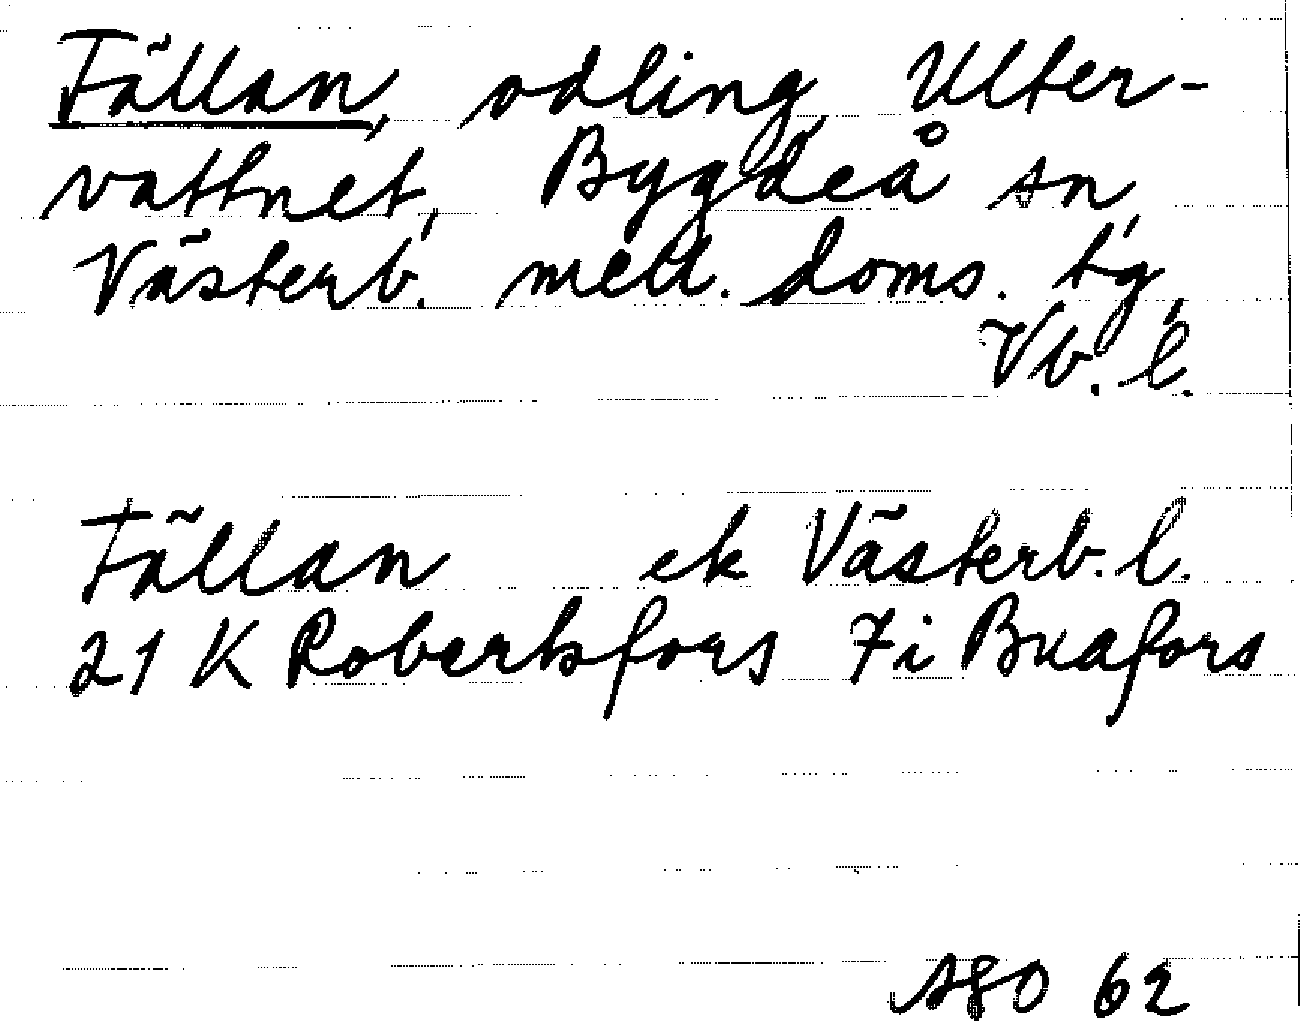 Fällan, odling, Ulter-
vattnet, Bygdeå sn,
Västerb. mell. doms. tg,
Vb. l.
Fällan ek Västerb. l.
21 K Robertsfors 7i Buafors
ASO 62